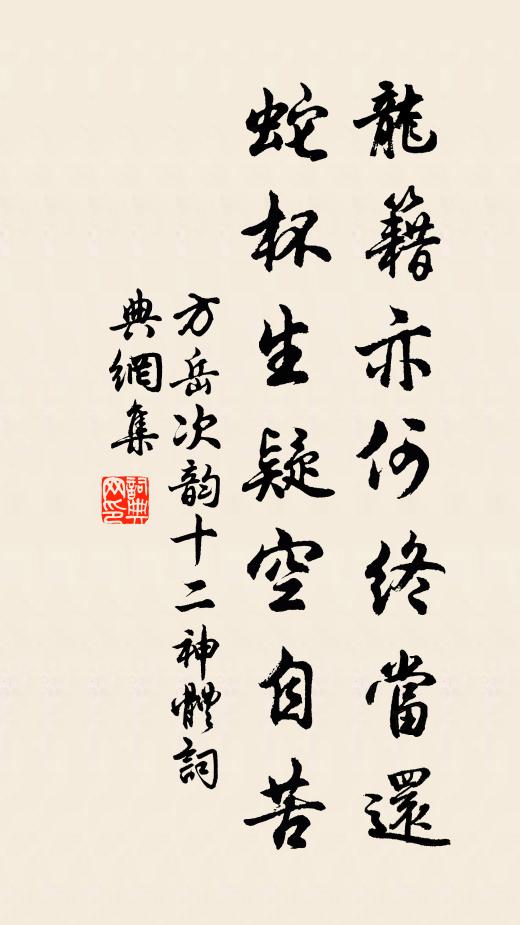 龍籍亦何終當還
蛇杯生疑空自苦
方岳次韵十二神體詞
典網集
詞典网印